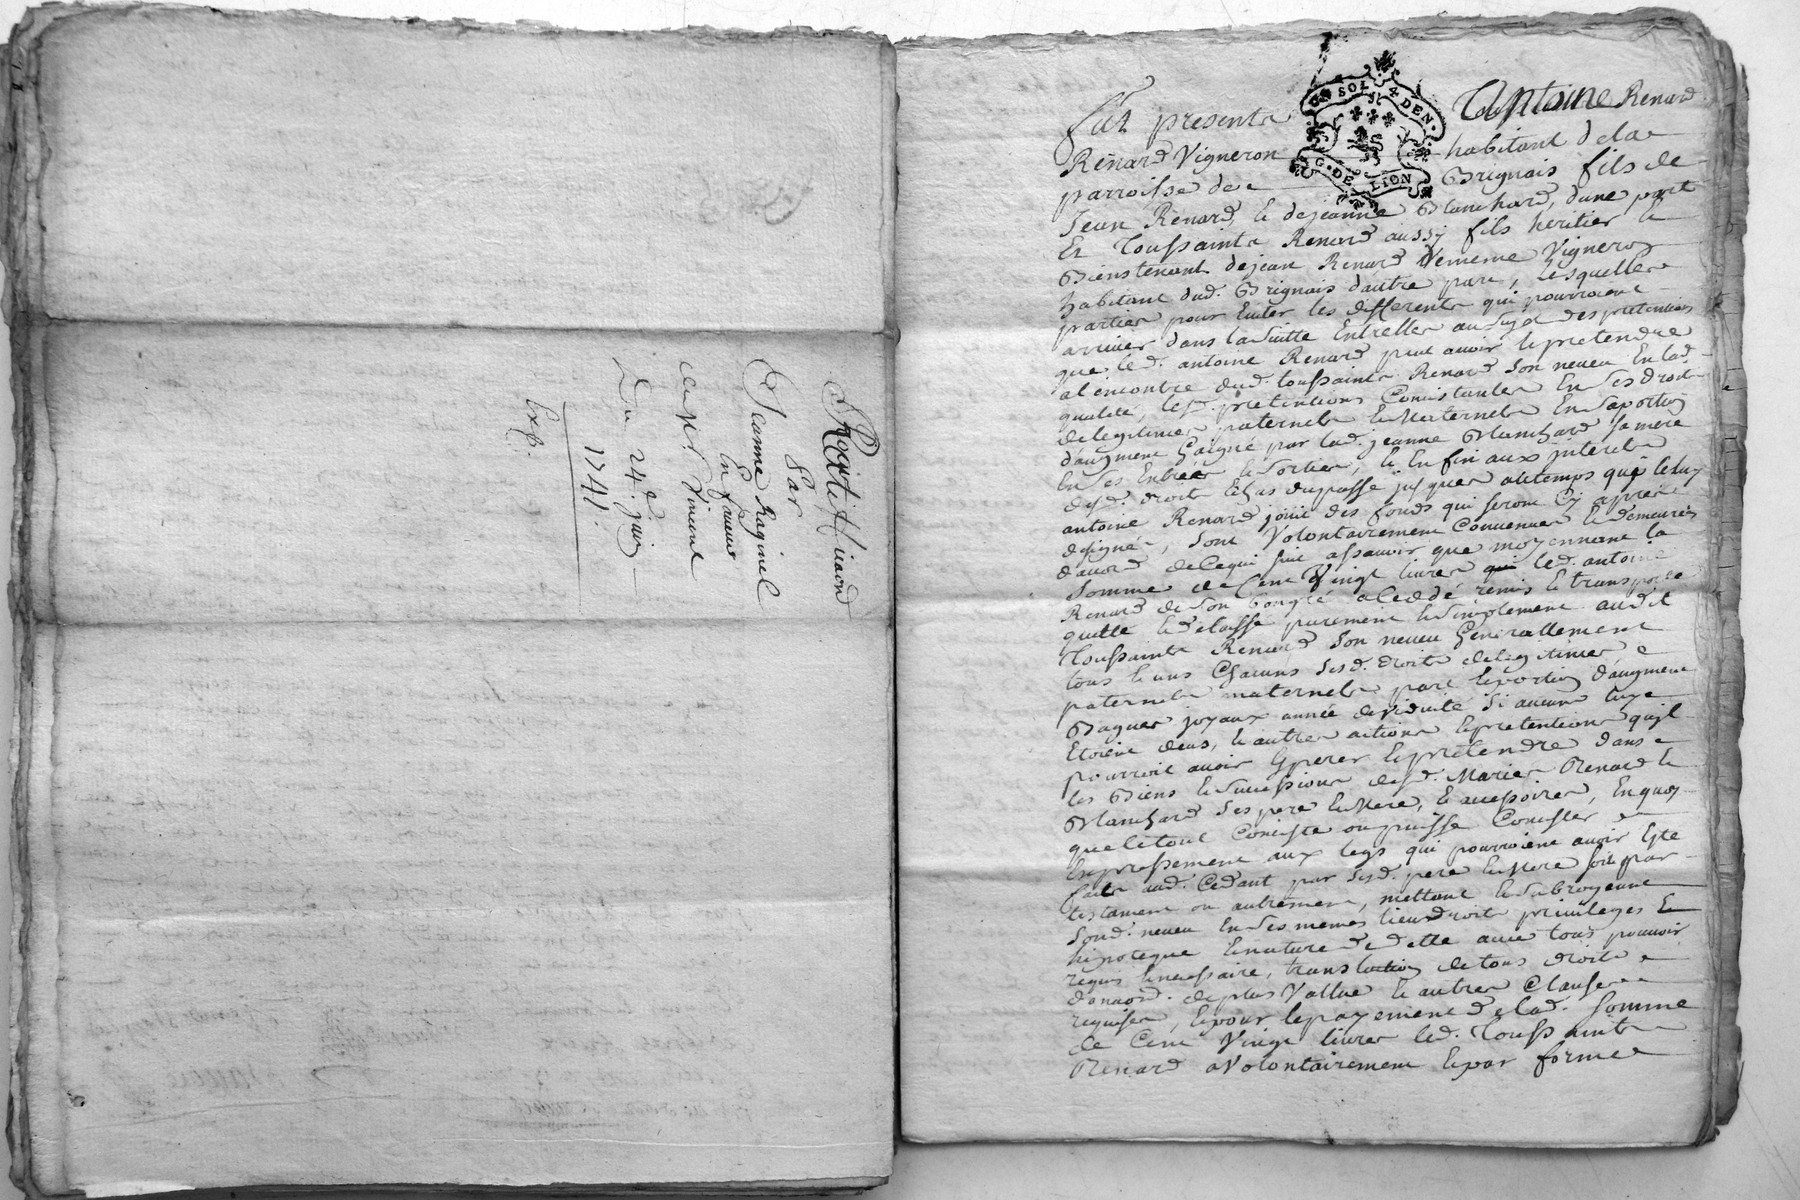 Par
Jeanne Raginel
En faveur
Du 24.e juin
1741.
Exp.
UN SOL 4 DEN.
G. DE LION
fut presente Antoine Renard
Renard Vigneron habitant de la
parroisse de Brignais fils de
Jean Renard, & de jeanne Blanchard, dune part
Et Toussainte Renard aussy fils heritier &
Bienstenant de jean Renard Vigneron
habitant dud. Brignais dautre part, Lesquelles
parties pour Eviter les differents qui pourroient
arriver dans la suitte Entrelles au sujet des pretentions
que led. antoine Renard peut avoir & pretendre
alencontre dud. toussainte Renard son neveu En lad.
qualité, lesd. pretentions Consistantes En ses droits
de legitimes paternels & Maternels En la portion
daugment Gaigné par lad. jeanne Blanchard sa mere
& En fin aux interets
desd. droits du passé jusques au temps que ledit
antoine Renard jouit des fonds qui seront Cy apres
designés, sont Volontairement Convenues & demeurées
daccord de Ce qui suit assavoir que moyennant la
somme de Cent Vingt livres led. antoine
Renard de son bongré a Cedé remis & transporté
quitté & delaissé purement & simplement audit
Toussainte Renard son neveu Generallement
tous & uns Chacuns sesd. droits de legitimes
paternels maternels part & portion daugment
Bagues joyaux année de viduité si aucuns luy
Etoient deus, & autres actions & pretentions quil
pourroit avoir Esperer & pretendre dans
les Biens & successions desd. Mariés Renard &
Blanchard ses pere & Mere, & accessoires, En quoy
que le tout Consiste ou puisse Consister
Expressement aux legs qui pourroient avoir Este
faits aud. Cedant par sesd. pere & Mere soit par
testament ou autrement, mettant & subrogeant
sond. neveu En ses memes lieux droits privileges &
hipoteque & nature de dette avec tous pouvoir
requis & necessaire, translation de tous droits
de plus Vallue & autres Clauses
requises, & pour le payement de lad. somme
de Cent Vingt livres led. Toussainte
Renard a Volontairement & par forme